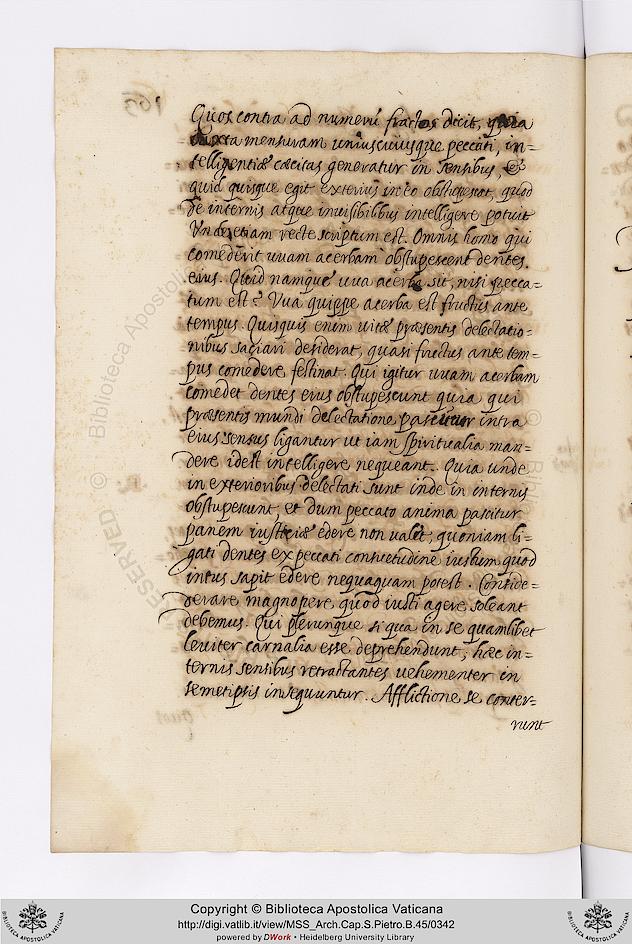 Quos contra ad numerū fractos dicit, quia
iuxta mensuram uniuscuiusque peccati, in=
telligentiæ cæcitas generatur in sensibus, &
quid quisque egit exterius in eo obstupescat, quod
de internis atque inuisibilibus intelligere potuit
Vnde etiam recte scriptum est. Omnis homo qui
comederit uuam acerbam obstupescent dentes
eius. Quid namque uua acerba sit, nisi pecca=
tum est? Vua quippe acerba est fructus ante
tempus. Quisquis enim uitæ præsentis delectatio=
nibus satiari desiderat, quasi fructus ante tem=
pus comedere festinat. Qui igitur uuam acerbam
comedet dentes eius obstupescunt quia qui
præsentis mundi delectatione pascitur intra
eius sensus ligantur ut iam spiritualia man=
dere idest intelligere nequeant. Quia unde
in exterioribus delectati sunt inde in internis
obstupescunt, et dum peccato anima pascitur
panem iustitiæ edere non ualet; quoniam li=
gati dentes ex peccati consuetudine iustum quod
intus sapit edere nequaquam potest. Conside=
derare magnopere quod iusti agere soleant
debemus. Qui plerunque si qua in se quamlibet
leuiter carnalia esse deprehendunt, hæc in=
ternis sensibus retractantes uehementer in
semetipsis insequuntur. Afflictione se conter=
runt
Copyright © Biblioteca Apostolica Vaticana
http://digi.vatlib.it/view/MSS_Arch.Cap.S.Pietro.B.45/0342
powered by DWork • Heidelberg University Library